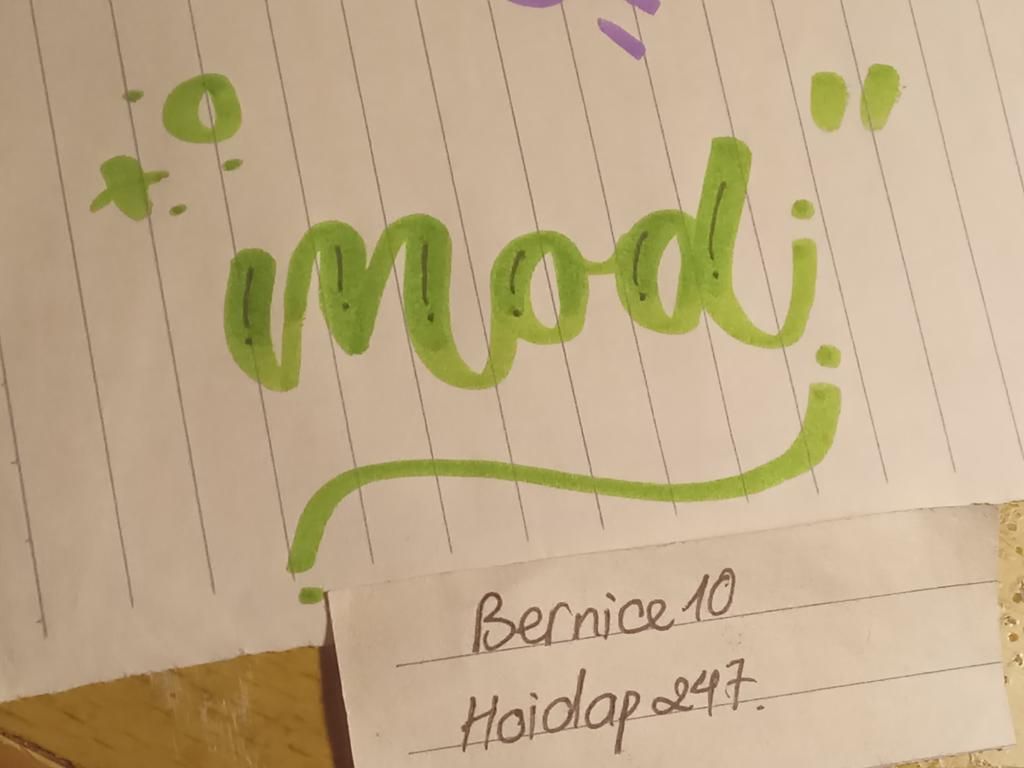 mod
Bernice 10
Hoidap 247.